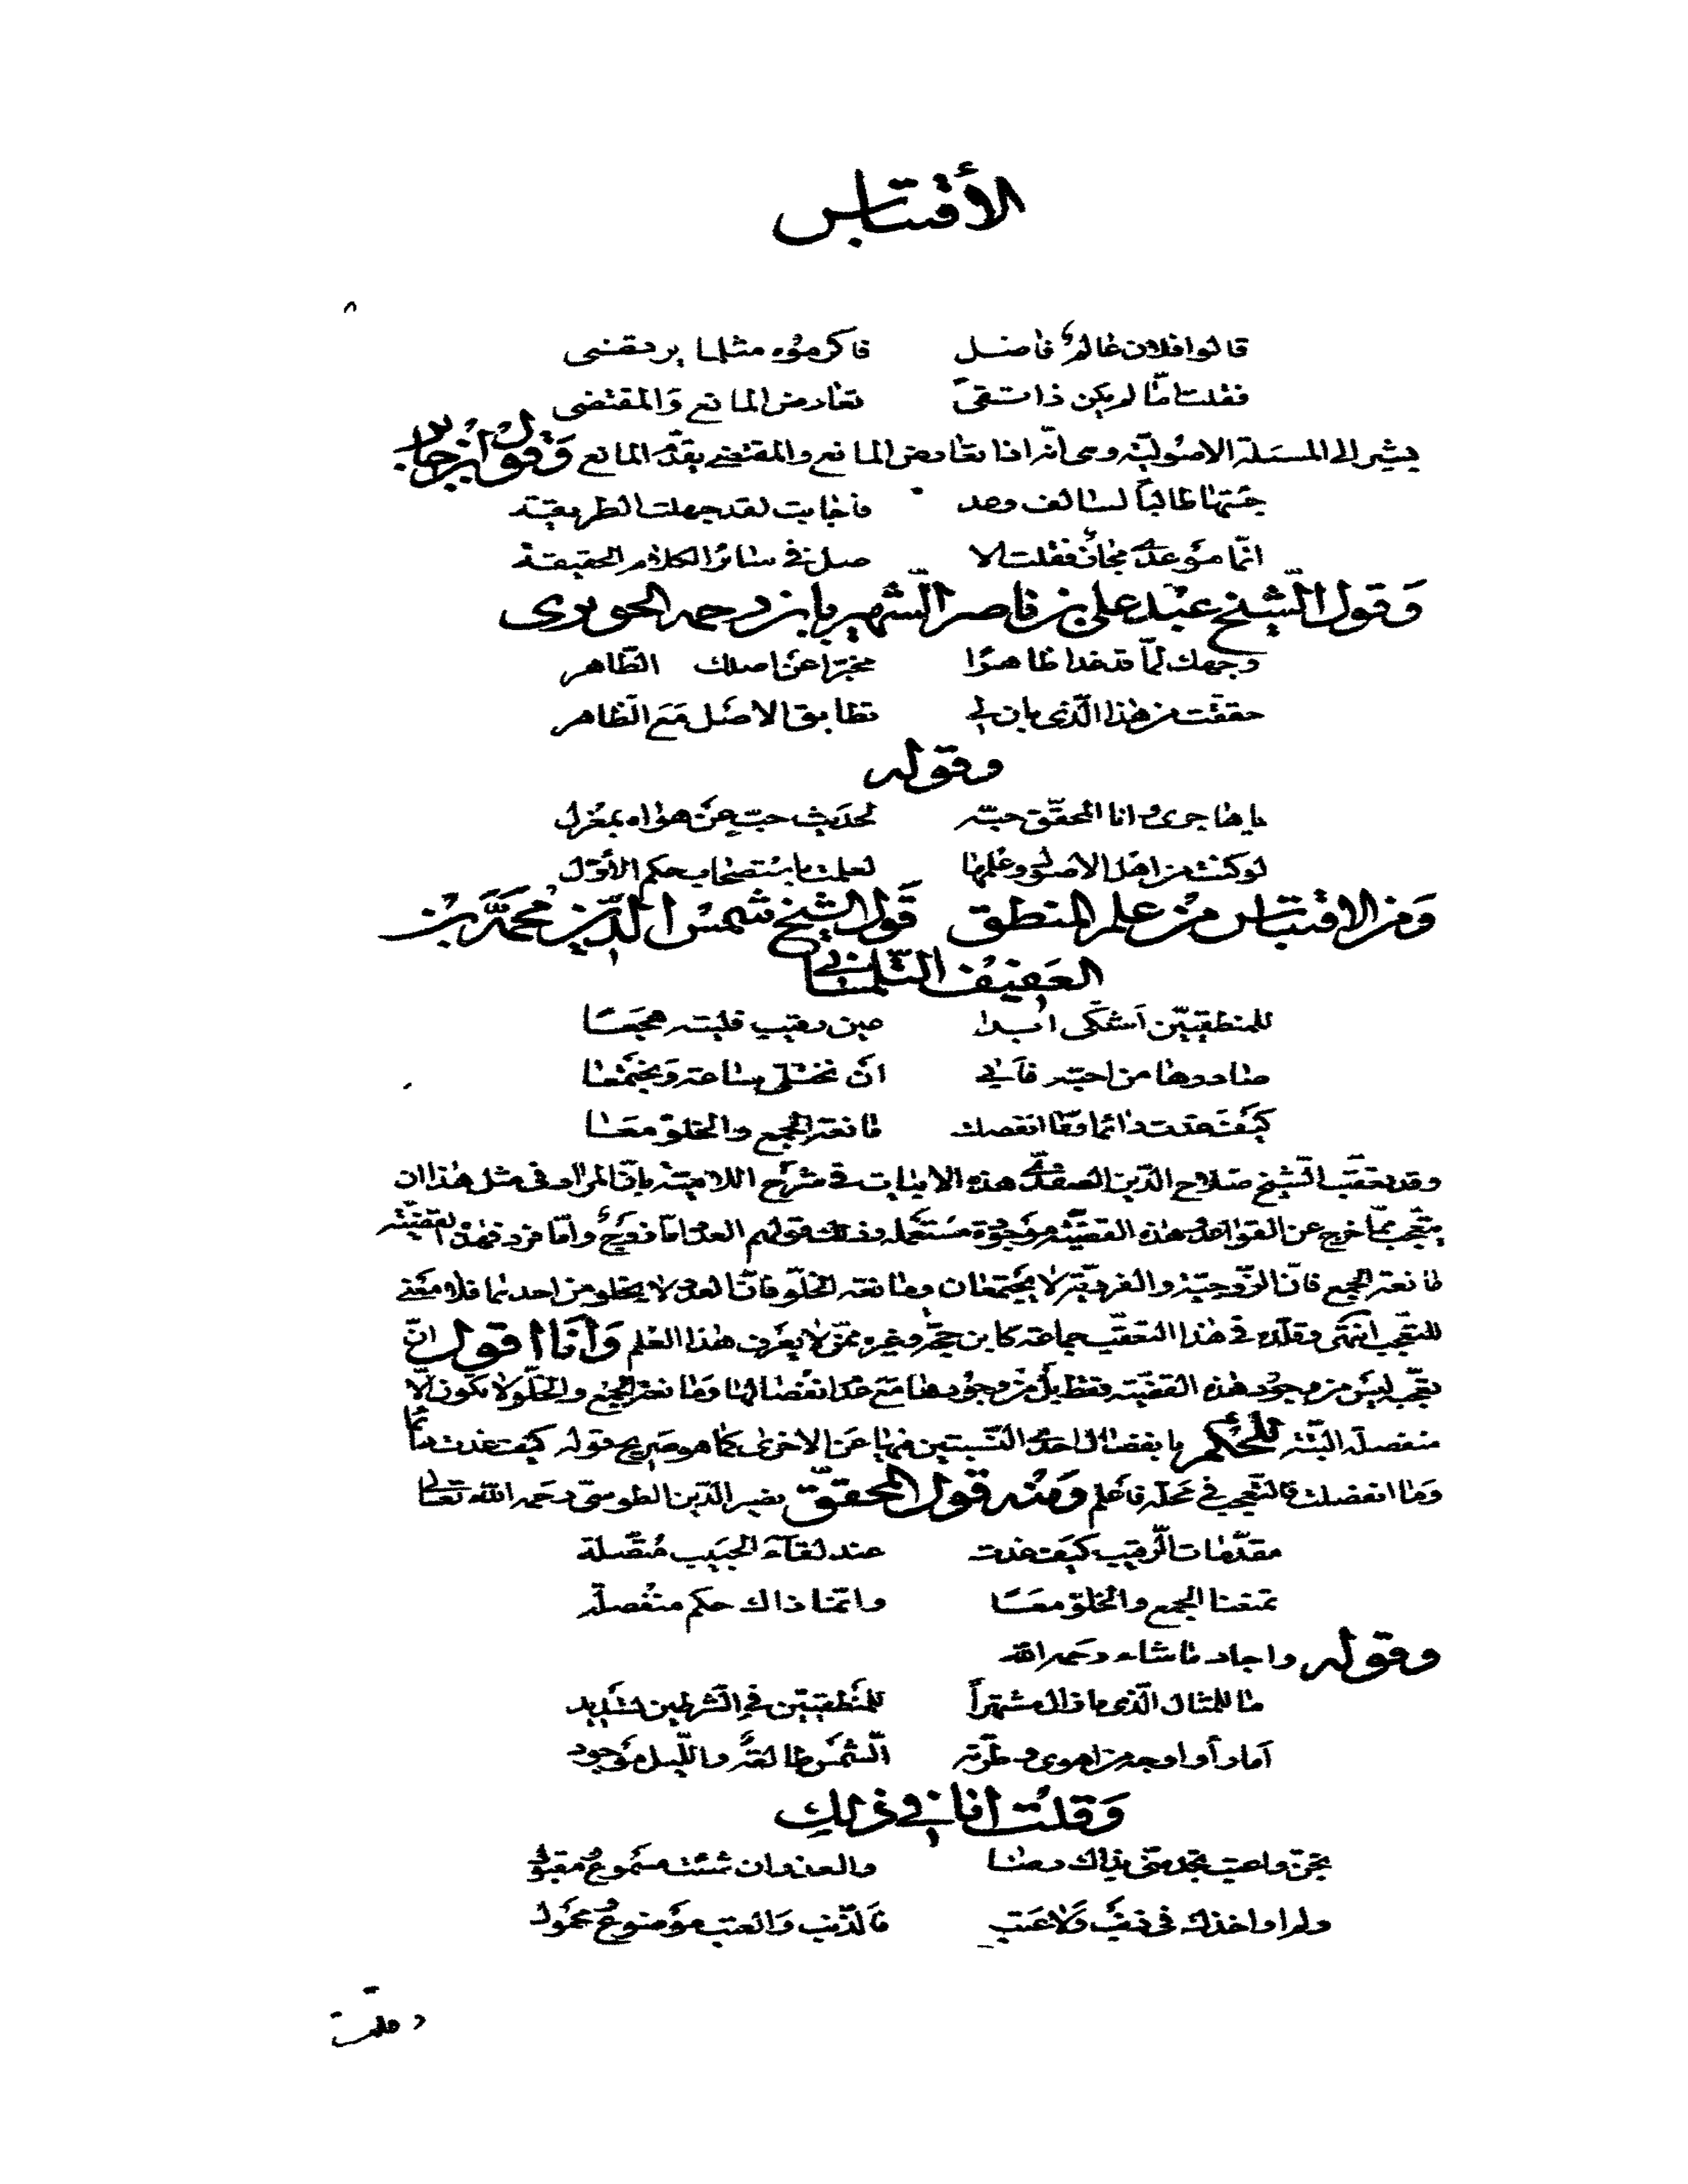 الأقتباس
قالوا فلان عالم فاضل فاكرموه مثلما يرتضى
فقلت لما لم يكن ذا تقى تعارض المانع والمقتضى
يشير الى المسئلة الاصولية وهى انه اذا تعارض المانع والمقتضى يقدم المانع وقول ابن جابر
جئتها طالبا لسالف وعد فاجابت لقد جهلت الطريقة
انما موعدى مجاز فقلت الا صل فى سائر الكلام الحقيقة
وقول الشيخ عبد على بن ناصر الشهير بابن رحمه الحويزى
وجهك لما قد غدا ظاهرا مخبرا عن اصلك الظاهر
حققت من هذا الذى بان لى تطابق الاصل مع الظاهر
وقوله
يا هاجرى وانا المحقق حبه لحديث حب عن هواه بمعزل
لو كنت من اهل الاصول وعلمها لعلمت باستصحاب حكم الأول
ومن الاقتباس من علم المنطق قول الشيخ شمس الدين محمد بن
العفيف التلمسانى
للمنطقيين أشتكى ابدا عين رقيب فليته هجعا
صادرها من احبه فأبى ان نختلى ساعة ونجتمعا
كيف غدت دائما وما انفصلت مانعة الجمع والخلو معا
وقد تعقب الشيخ صلاح الدين الصفدى هذه الابيات فى شرح اللامية بان المراد فى مثل هذا ان
يتعجب مما خرج عن القواعد وهذه القضية موجودة مستعملة وذلك قولهم العدد اما زوج واما فرد فهذه القضية
مانعة الجمع فان الزوجية والفردية لا يجتمعان ومانعة الخلو فان العدد لا يخلو من احدهما فلا معنى
للتعجب انتهى وقلده فى هذا التعقب جماعة كابن حجة وغيره ممن لا يعرف هذا العلم وأنا اقول ان
تعجبه ليس من وجود هذه القضية فقط بل من وجودها مع عدم انفصالها ومانعة الجمع والخلو لا تكون الا
منفصلة البتة للحكم بانفصال احدى النسبتين فيها عن الاخرى كما هو صريح قوله كيف غدت دائما
وما انفصلت فالتعجب فى محله فاعلم ومنه قول المحقق نصير الدين الطوسى رحمه الله تعالى
مقدمات الرقيب كيف غدت عند لقآء الحبيب متصلة
تمنعنا الجمع والخلو معا وانما ذاك حكم منفصلة
وقوله واجاد ما شاء رحمه الله
ما للمثال الذى ما زال مشتهرا للمنطقيين فى الشرطين تشديد
أما رأوا وجه من اهوى وطرته الشمس طالعة والليل موجود
وقلت انا فى ذلك
تجن واعتب تجد منى بذاك رضا والعذر ان شئت مسموع مقبول
ولم اواخذك فى ذنب ولا عتب فالذنب والعتب موضوع محمول
وقلت